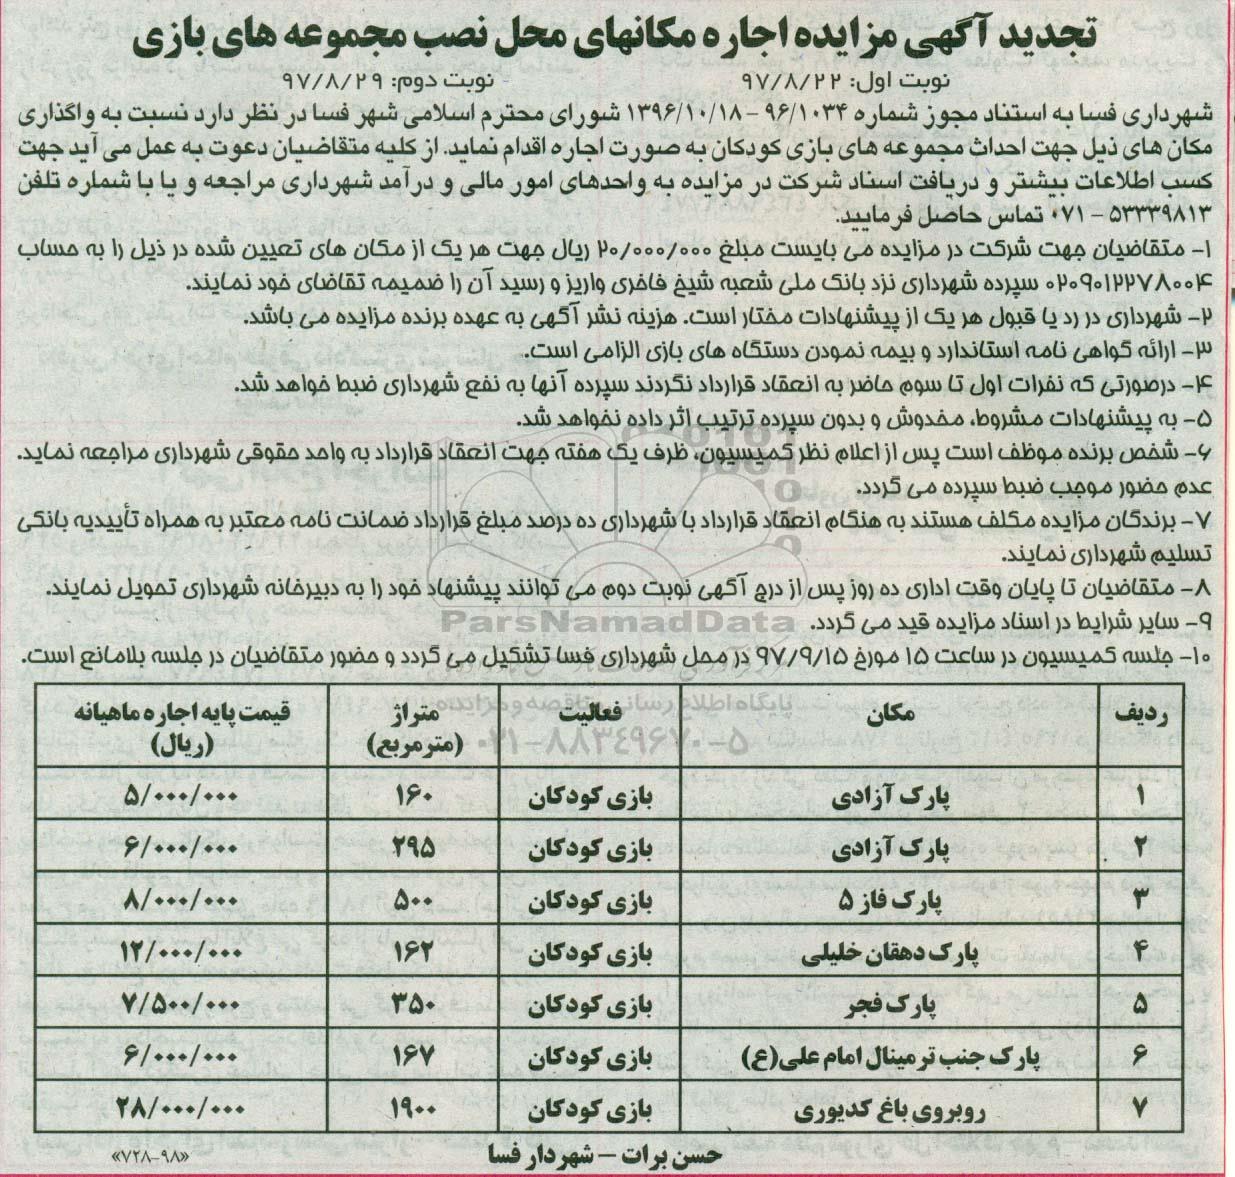 تجدید آگهی مزایده اجاره مکانهای محل نصب مجموعه های بازی
نوبت اول: ۹۷/۸/۲۲ نوبت دوم: ۹۷/۸/۲۹
شهرداری فسا به استناد مجوز شماره ۹۶/۱۰۳۴ - ۱۳۹۶/۱۰/۱۸ شورای محترم اسلامی شهر فسا در نظر دارد نسبت به واگذاری
مکان های ذیل جهت احداث مجموعه های بازی کودکان به صورت اجاره اقدام نماید. از کلیه متقاضیان دعوت به عمل می آید جهت
کسب اطلاعات بیشتر و دریافت اسناد شرکت در مزایده به واحدهای امور مالی و درآمد شهرداری مراجعه و یا با شماره تلفن
۵۳۳۳۹۸۱۳ - ۰۷۱ تماس حاصل فرمایید.
۱- متقاضیان جهت شرکت در مزایده می بایست مبلغ ۲۰/۰۰۰/۰۰۰ ریال جهت هر یک از مکان های تعیین شده در ذیل را به حساب
۰۲۰۹۰۱۲۲۷۸۰۰۴ سپرده شهرداری نزد بانک ملی شعبه شیخ فاخری واریز و رسید آن را ضمیمه تقاضای خود نمایند.
۲- شهرداری در رد یا قبول هر یک از پیشنهادات مختار است. هزینه نشر آگهی به عهده برنده مزایده می باشد.
۳- ارائه گواهی نامه استاندارد و بیمه نمودن دستگاه های بازی الزامی است.
۴- درصورتی که نفرات اول تا سوم حاضر به انعقاد قرارداد نگردند سپرده آنها به نفع شهرداری ضبط خواهد شد.
۵- به پیشنهادات مشروط، مخدوش و بدون سپرده ترتیب اثر داده نخواهد شد.
۶- شخص برنده موظف است پس از اعلام نظر کمیسیون، ظرف یک هفته جهت انعقاد قرارداد به واحد حقوقی شهرداری مراجعه نماید.
عدم حضور موجب ضبط سپرده می گردد.
۷- برندگان مزایده مکلف هستند به هنگام انعقاد قرارداد با شهرداری ده درصد مبلغ قرارداد ضمانت نامه معتبر به همراه تأییدیه بانکی
تسلیم شهرداری نمایند.
۸- متقاضیان تا پایان وقت اداری ده روز پس از درج آگهی نوبت دوم می توانند پیشنهاد خود را به دبیرخانه شهرداری تحویل نمایند.
۹- سایر شرایط در اسناد مزایده قید می گردد.
ParsNamadData
۱۰- جلسه کمیسیون در ساعت ۱۵ مورخ ۹۷/۹/۱۵ در محل شهرداری فسا تشکیل می گردد و حضور متقاضیان در جلسه بلامانع است.
پایگاه اطلاع رسانی مناقصه و مزایده
۰۲۱-۸۸۳۴۹۶۷۰-۵
ردیف مکان فعالیت متراژ (مترمربع) قیمت پایه اجاره ماهیانه (ریال)
۱ پارک آزادی بازی کودکان ۱۶۰ ۵/۰۰۰/۰۰۰
۲ پارک آزادی بازی کودکان ۲۹۵ ۶/۰۰۰/۰۰۰
۳ پارک فاز ۵ بازی کودکان ۵۰۰ ۸/۰۰۰/۰۰۰
۴ پارک دهقان خلیلی بازی کودکان ۱۶۲ ۱۲/۰۰۰/۰۰۰
۵ پارک فجر بازی کودکان ۳۵۰ ۷/۵۰۰/۰۰۰
۶ پارک جنب ترمینال امام علی(ع) بازی کودکان ۱۶۷ ۶/۰۰۰/۰۰۰
۷ روبروی باغ کدیوری بازی کودکان ۱۹۰۰ ۲۸/۰۰۰/۰۰۰
حسن برات - شهردار فسا
«۷۲۸-۹۸»